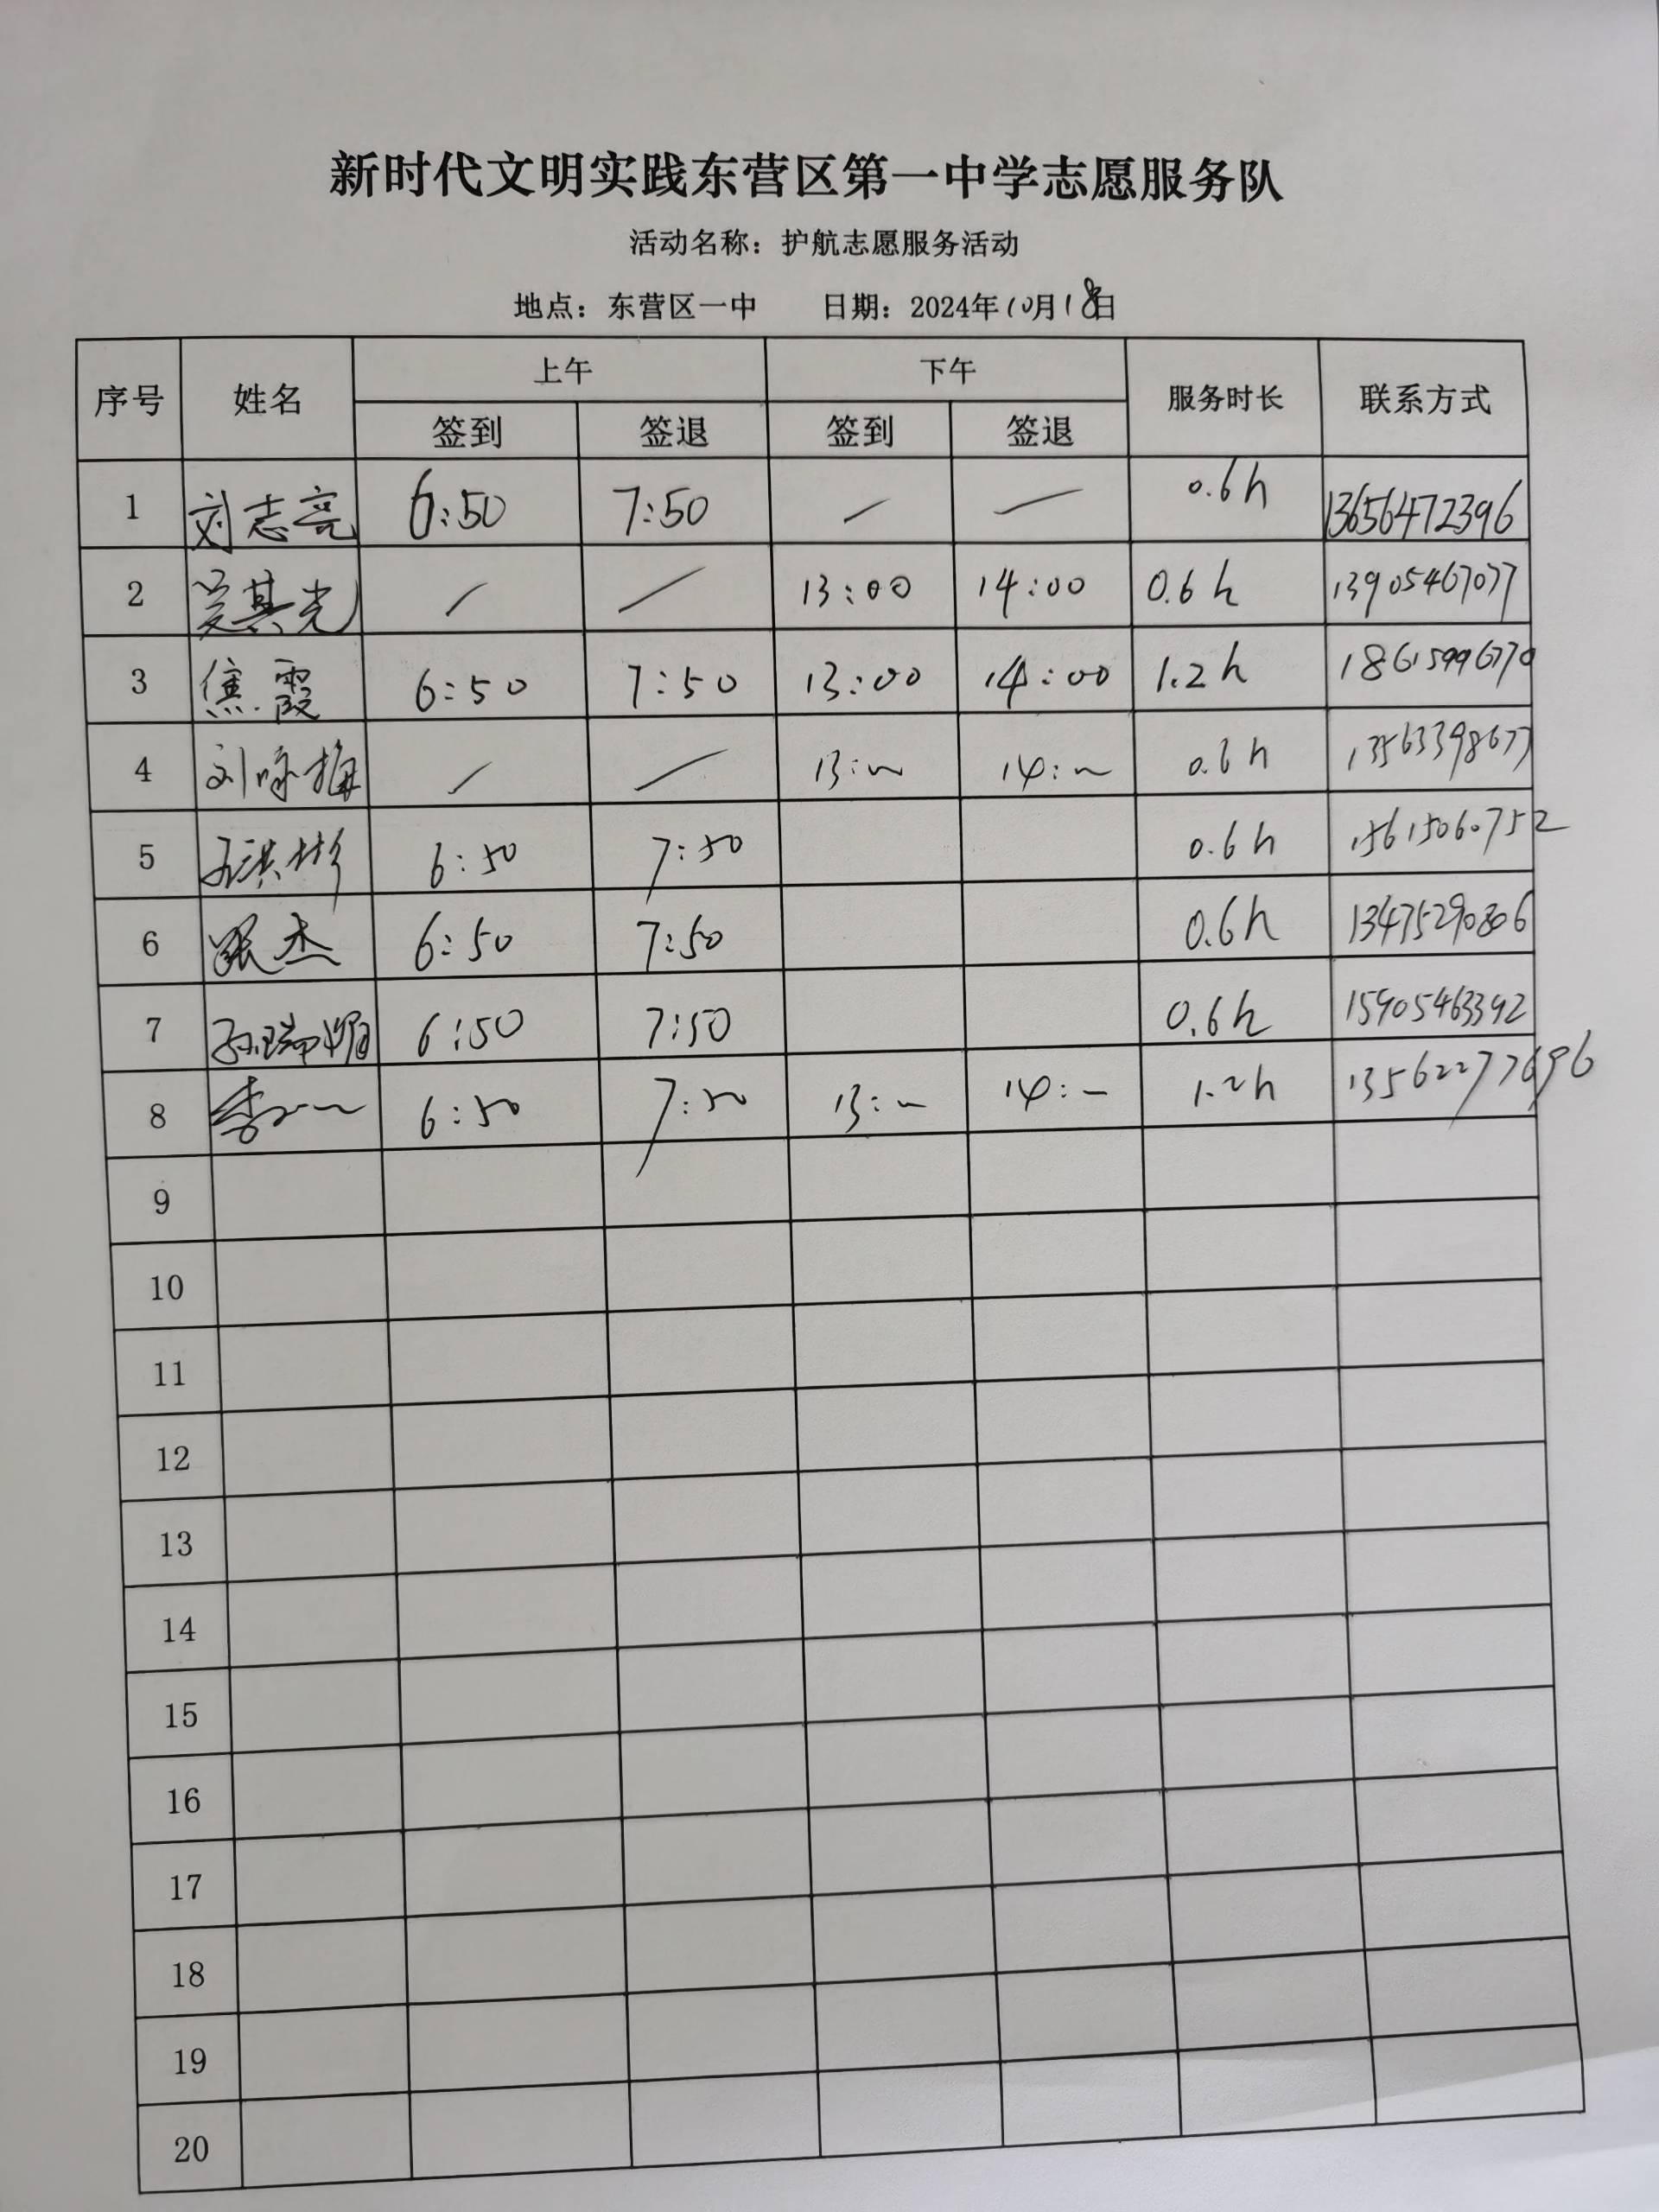 新时代文明实践东营区第一中学志愿服务队
活动名称：护航志愿服务活动
地点：东营区一中 日期：2024年10月18日
序号 姓名 上午 下午 服务时长 联系方式
签到 签退 签到 签退
1 刘志亮 6:50 7:50 / / 0.6h 13656472396
2 吴其光 / / 13:00 14:00 0.6h 13905467077
3 焦霞 6:50 7:50 13:00 14:00 1.2h
4 刘咏梅 / / 13: 14: 0.6h 13563398677
5 6:50 7:50 0.6h 15615060752
6 张杰 6:50 7:50 0.6h 13475290806
7 6:50 7:50 0.6h 15905463392
8 6:50 7:50 13: 14: 1.2h 13562277696
9
10
11
12
13
14
15
16
17
18
19
20